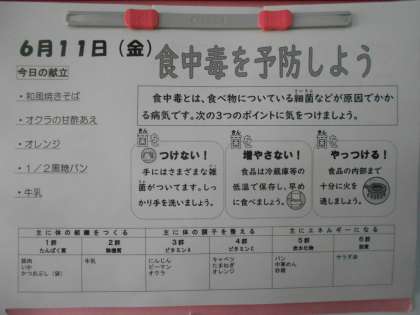 6月11日（金）
食中毒を予防しよう
今日の献立
・和風焼きそば
・オクラの甘酢あえ
・オレンジ
・1／2黒糖パン
・牛乳
食中毒とは、食べ物についている細菌などが原因でかか
る病気です。次の3つのポイントに気をつけましょう。
菌を
つけない！
手にはさまざまな雑
菌がついてます。しっ
かり手を洗いましょう。
菌を
増やさない！
食品は冷蔵庫等の
低温で保存し、早め
に食べましょう。
菌を
やっつける！
食品の内部まで
十分に火を
通しましょう。
主に体の組織をつくる
主に体の調子を整える
主にエネルギーになる
1群 2群 3群 4群 5群 6群
たんぱく質 無機質 ビタミンA ビタミンC 炭水化物 脂質
豚肉
いか
かつおぶし（袋）
牛乳
にんじん
ピーマン
オクラ
キャベツ
たまねぎ
オレンジ
パン
中華めん
砂糖
サラダ油